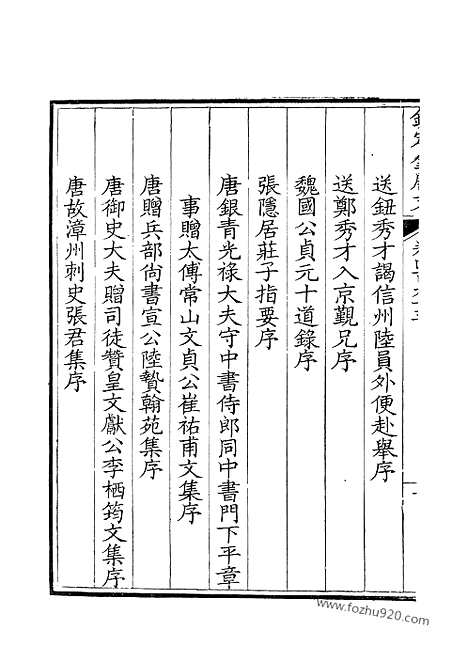 欽定全唐文
送鈕秀才謁信州陸員外便赴舉序
送鄭秀才入京覲兄序
魏國公貞元十道錄序
張隱居莊子指要序
唐銀青光祿大夫守中書侍郎同中書門下平章
事贈太傅常山文貞公崔祐甫文集序
唐贈兵部尚書宣公陸贄翰苑集序
唐御史大夫贈司徒贊皇文獻公李栖筠文集序
唐故漳州刺史張君集序
www.fozhu920.com